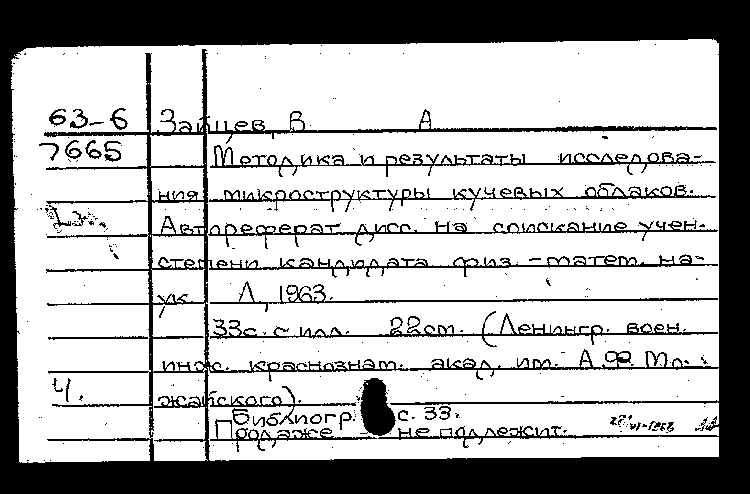 63-6 Зайцев, В А
7665 Методика и результаты исследова-
ния микроструктуры кучевых облаков.
Автореферат дисс. на соискание учен.
степени кандидата физ.-матем. на-
ук Л., 1963.
33с. с илл. 22см. (Ленингр. воен.
инж. краснознам. акад. им. А.Ф. Мо-
ч. жайского).
Библиогр. с. 33.
Продаже - не подлежит.